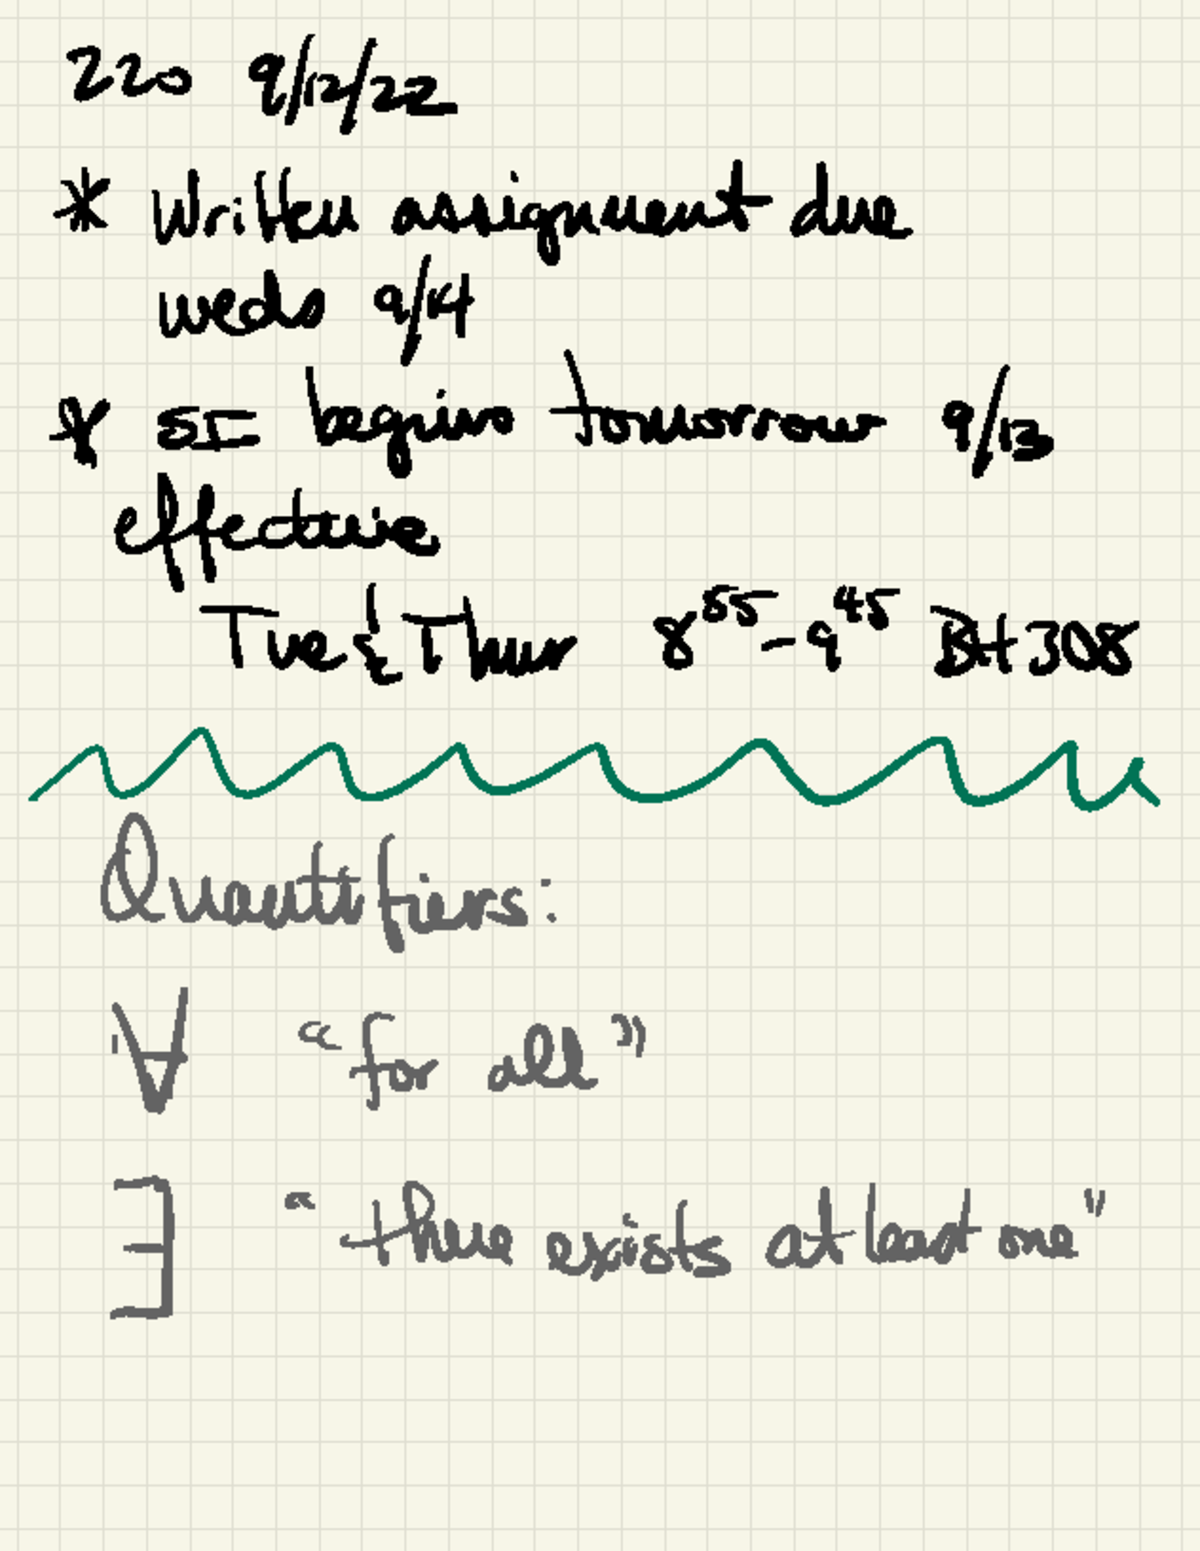 220 9/12/22
* Written assignment due
weds 9/14
* SI begins tomorrow 9/13
effective
Tue & Thur 8⁵⁵-9⁴⁵ BH 308
Quantifiers:
∀ "for all"
∃ "there exists at least one"